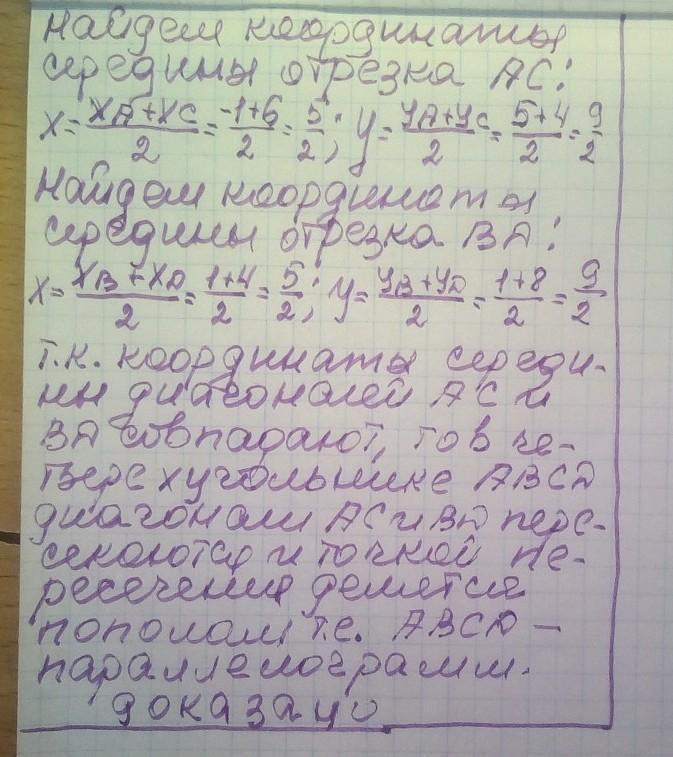 Найдем координаты
середины отрезка AC:
x = (xA + xC)/2 = (-1+6)/2 = 5/2; y = (yA + yC)/2 = (5+4)/2 = 9/2
Найдем координаты
середины отрезка BД:
x = (xB + xД)/2 = (1+4)/2 = 5/2; y = (yB + yД)/2 = (1+8)/2 = 9/2
т.к. координаты середи-
ны диагоналей AC и
BД совпадают, то в че-
тырехугольнике ABCД
диагонали AC и BД пере-
секаются и точкой пе-
ресечения делятся
пополам, т.е. ABCД –
параллелограмм.
доказано